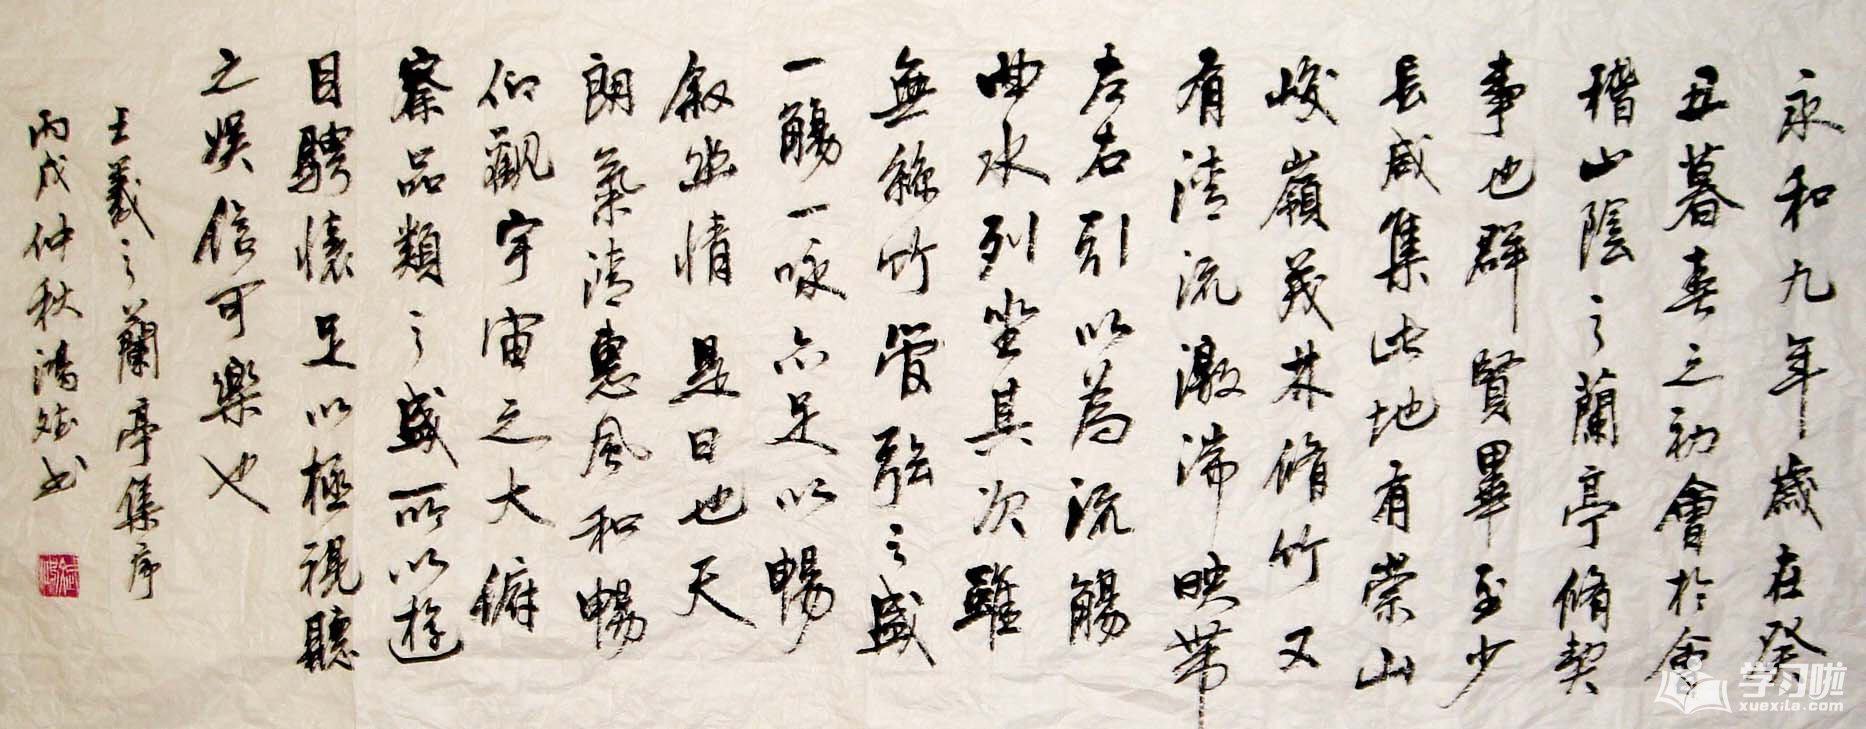 永和九年歲在癸
丑暮春之初會於會
稽山陰之蘭亭脩契
事也群賢畢至少
長咸集此地有崇山
峻嶺茂林脩竹又
有清流激湍映帶
左右引以為流觴
曲水列坐其次雖
無絲竹管弦之盛
一觴一咏亦足以暢
敘幽情是日也天
朗氣清惠風和暢
仰觀宇宙之大俯
察品類之盛所以遊
目騁懷足以極視聽
之娛信可樂也
王羲之蘭亭集序
丙戌仲秋鴻斌书
学习啦
xuexila.com